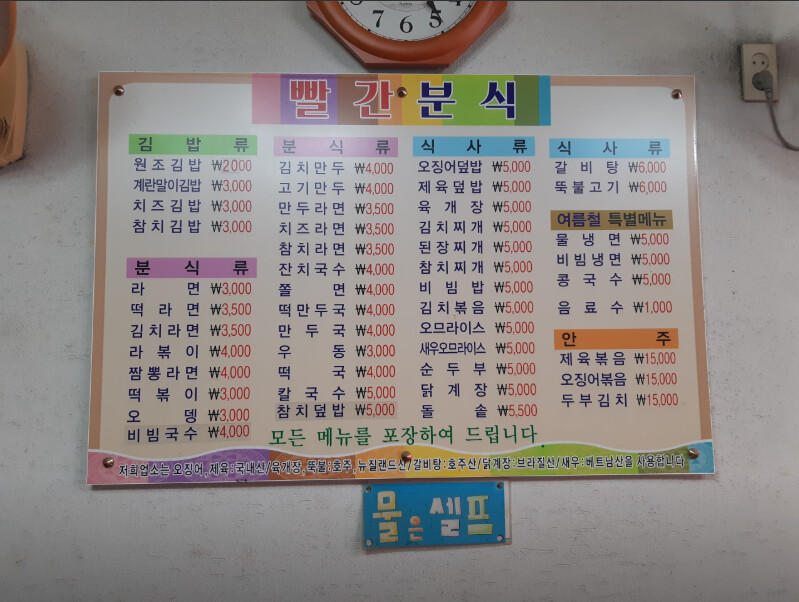 빨간분식
김밥류
원조김밥 ₩2,000
계란말이김밥 ₩3,000
치즈김밥 ₩3,000
참치김밥 ₩3,000
분식류
라면 ₩3,000
떡라면 ₩3,500
김치라면 ₩3,500
라볶이 ₩4,000
짬뽕라면 ₩4,000
떡볶이 ₩3,000
오뎅 ₩3,000
비빔국수 ₩4,000
분식류
김치만두 ₩4,000
고기만두 ₩4,000
만두라면 ₩3,500
치즈라면 ₩3,500
참치라면 ₩3,500
잔치국수 ₩4,000
쫄면 ₩4,000
떡만두국 ₩4,000
만두국 ₩4,000
우동 ₩3,000
떡국 ₩4,000
칼국수 ₩5,000
참치덮밥 ₩5,000
식사류
오징어덮밥 ₩5,000
제육덮밥 ₩5,000
육개장 ₩5,000
김치찌개 ₩5,000
된장찌개 ₩5,000
참치찌개 ₩5,000
비빔밥 ₩5,000
김치볶음 ₩5,000
오므라이스 ₩5,000
새우오므라이스 ₩5,000
순두부 ₩5,000
닭계장 ₩5,000
돌솥 ₩5,500
식사류
갈비탕 ₩6,000
뚝불고기 ₩6,000
여름철 특별메뉴
물냉면 ₩5,000
비빔냉면 ₩5,000
콩국수 ₩5,000
음료수 ₩1,000
안주
제육볶음 ₩15,000
오징어볶음 ₩15,000
두부김치 ₩15,000
모든 메뉴를 포장하여 드립니다.
저희업소는 오징어, 제육:국내산/육개장, 뚝불:호주, 뉴질랜드산/갈비탕:호주산/닭계장:브라질산/새우:베트남산을 사용합니다.
물은 셀프